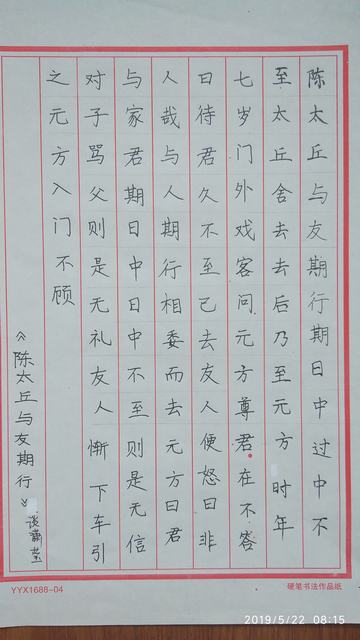 陈太丘与友期行期日中过中不
至太丘舍去去后乃至元方时年
七岁门外戏客问元方尊君在不答
曰待君久不至已去友人便怒曰非
人哉与人期行相委而去元方曰君
与家君期日中日中不至则是无信
对子骂父则是无礼友人惭下车引
之元方入门不顾
《陈太丘与友期行》
谈
YYX1688-04
硬笔书法作品纸
2019/5/22 08:15